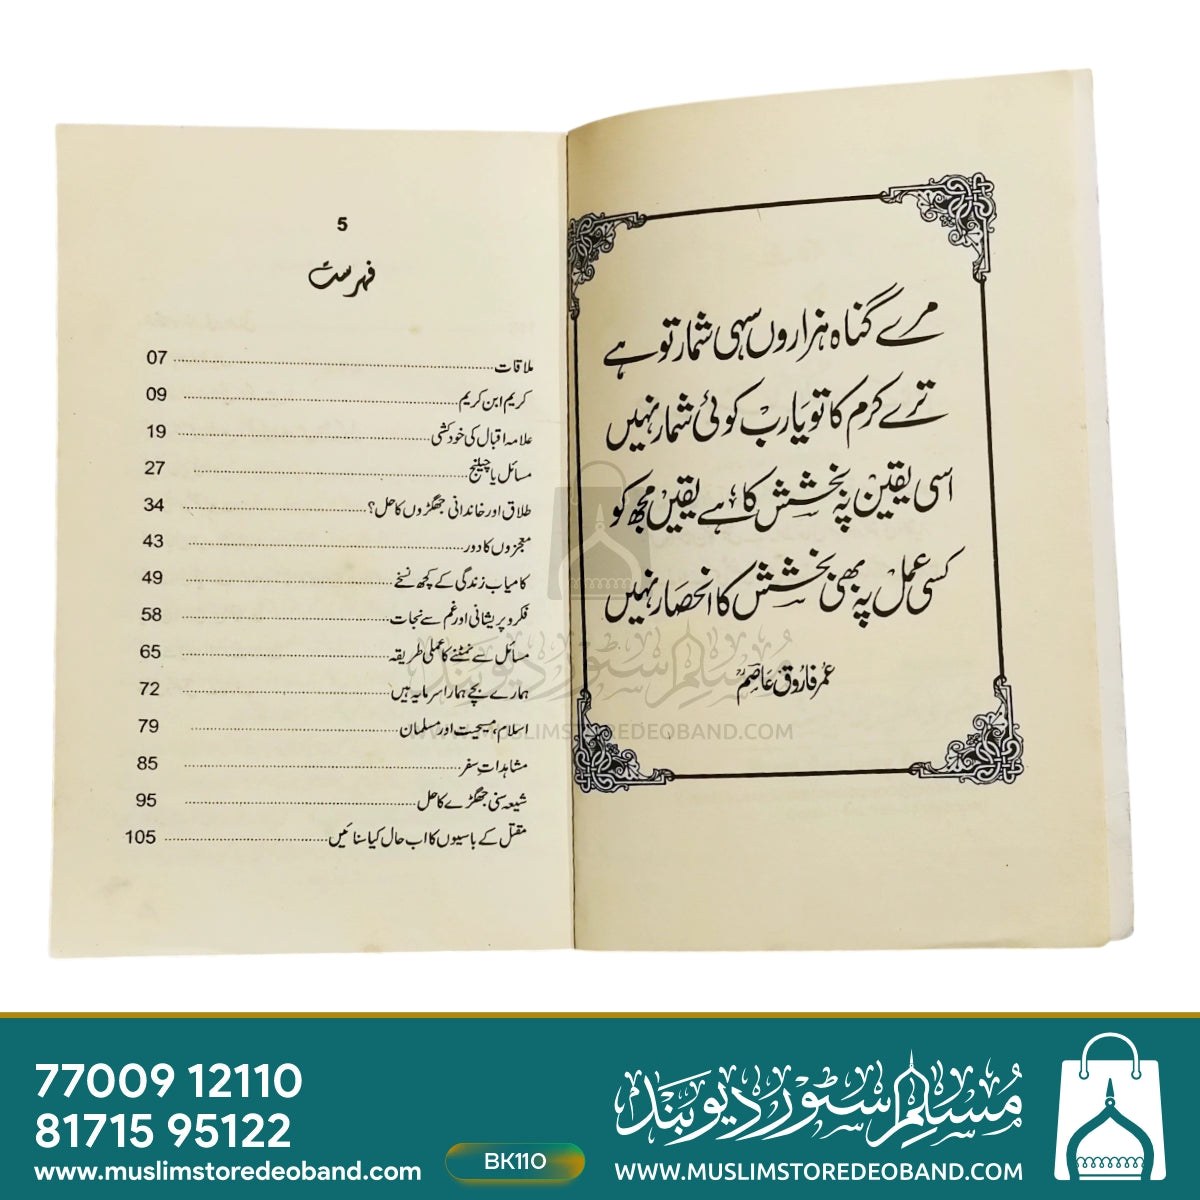 مرے گناہ ہزاروں سہی شمار تو ہے
ترے کرم کا تو یا رب کوئی شمار نہیں
اسی یقین پہ بخشش کا ہے یقیں مجھ کو
کسی عمل پہ بھی بخشش کا انحصار نہیں
عمر فاروق عاصم
5
فہرست
ملاقات 07
کریم ابن کریم 09
علامہ اقبال کی خودکشی 19
مسائل یا چیلنج 27
طلاق اور خاندانی جھگڑوں کا حل؟ 34
معجزوں کا دور 43
کامیاب زندگی کے کچھ نسخے 49
فکر و پریشانی اور غم سے نجات 58
مسائل سے نمٹنے کا عملی طریقہ 65
ہمارے بچے ہمارا سرمایہ ہیں 72
اسلام، مسیحیت اور مسلمان 79
مشاہداتِ سفر 85
شیعہ سنی جھگڑے کا حل 95
مقتل کے باسیوں کا اب حال کیا سنائیں 105
مسلم سٹور دیوبند
WWW.MUSLIMSTOREDEOBAND.COM
77009 12110
81715 95122
www.muslimstoredeoband.com
BK110
مسلم سٹور دیوبند
WWW.MUSLIMSTOREDEOBAND.COM